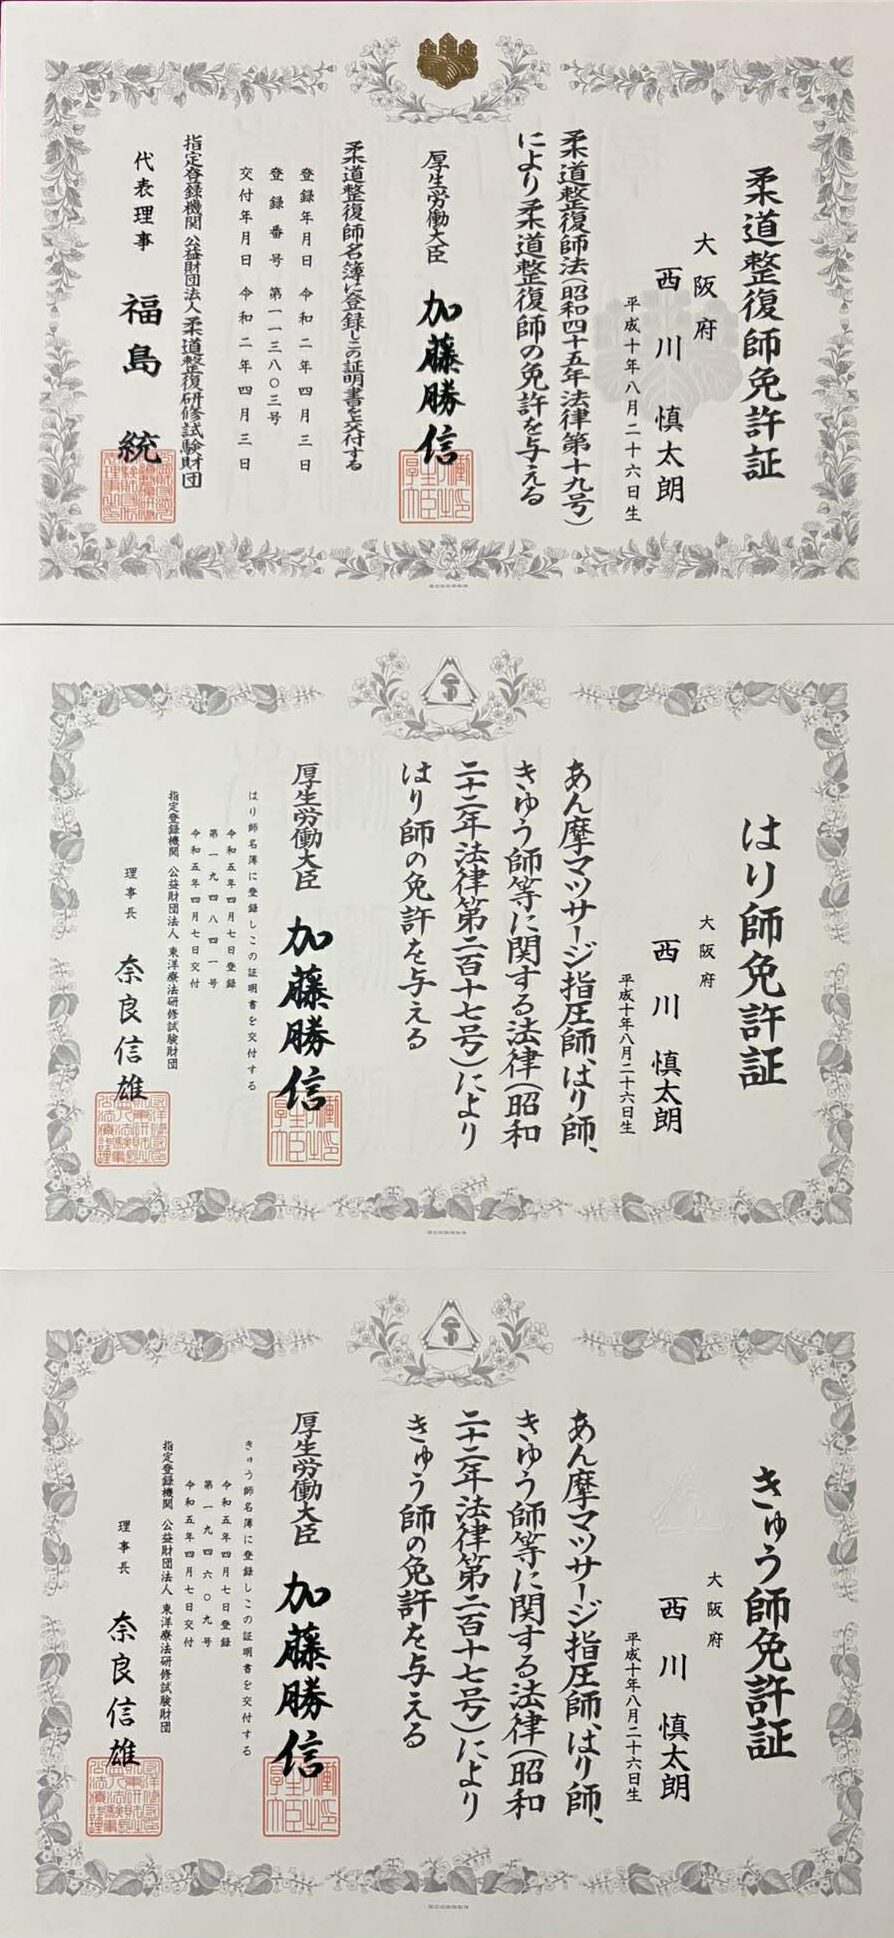 柔道整復師免許証
大阪府
西川 慎太朗
平成十年八月二十六日生
柔道整復師法(昭和四十五年法律第十九号)
により柔道整復師の免許を与える
厚生労働大臣 加藤勝信
柔道整復師名簿に登録しこの証明書を交付する
登録年月日 令和二年四月三日
登録番号 第一一三八〇三号
交付年月日 令和二年四月三日
指定登録機関 公益財団法人柔道整復研修試験財団
代表理事 福島 統
はり師免許証
大阪府
西川 慎太朗
平成十年八月二十六日生
あん摩マツサージ指圧師、はり師、
きゅう師等に関する法律(昭和
二十二年法律第二百十七号)により
はり師の免許を与える
厚生労働大臣 加藤勝信
はり師名簿に登録しこの証明書を交付する
令和五年四月七日登録
第一九四八四一号
令和五年四月七日交付
指定登録機関 公益財団法人 東洋療法研修試験財団
理事長 奈良信雄
きゅう師免許証
大阪府
西川 慎太朗
平成十年八月二十六日生
あん摩マツサージ指圧師、はり師、
きゅう師等に関する法律(昭和
二十二年法律第二百十七号)により
きゅう師の免許を与える
厚生労働大臣 加藤勝信
きゅう師名簿に登録しこの証明書を交付する
令和五年四月七日登録
第一九四六〇九号
令和五年四月七日交付
指定登録機関 公益財団法人 東洋療法研修試験財団
理事長 奈良信雄